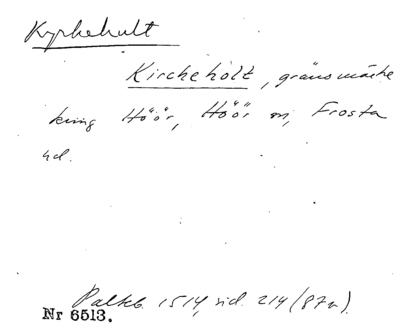 Kyrkehult
Kircheholt, gränsmärke
kring Höör, Höör sn, Frosta
hd.
Palteb. 1514, sid. 214 (87v).
Nr 6513.